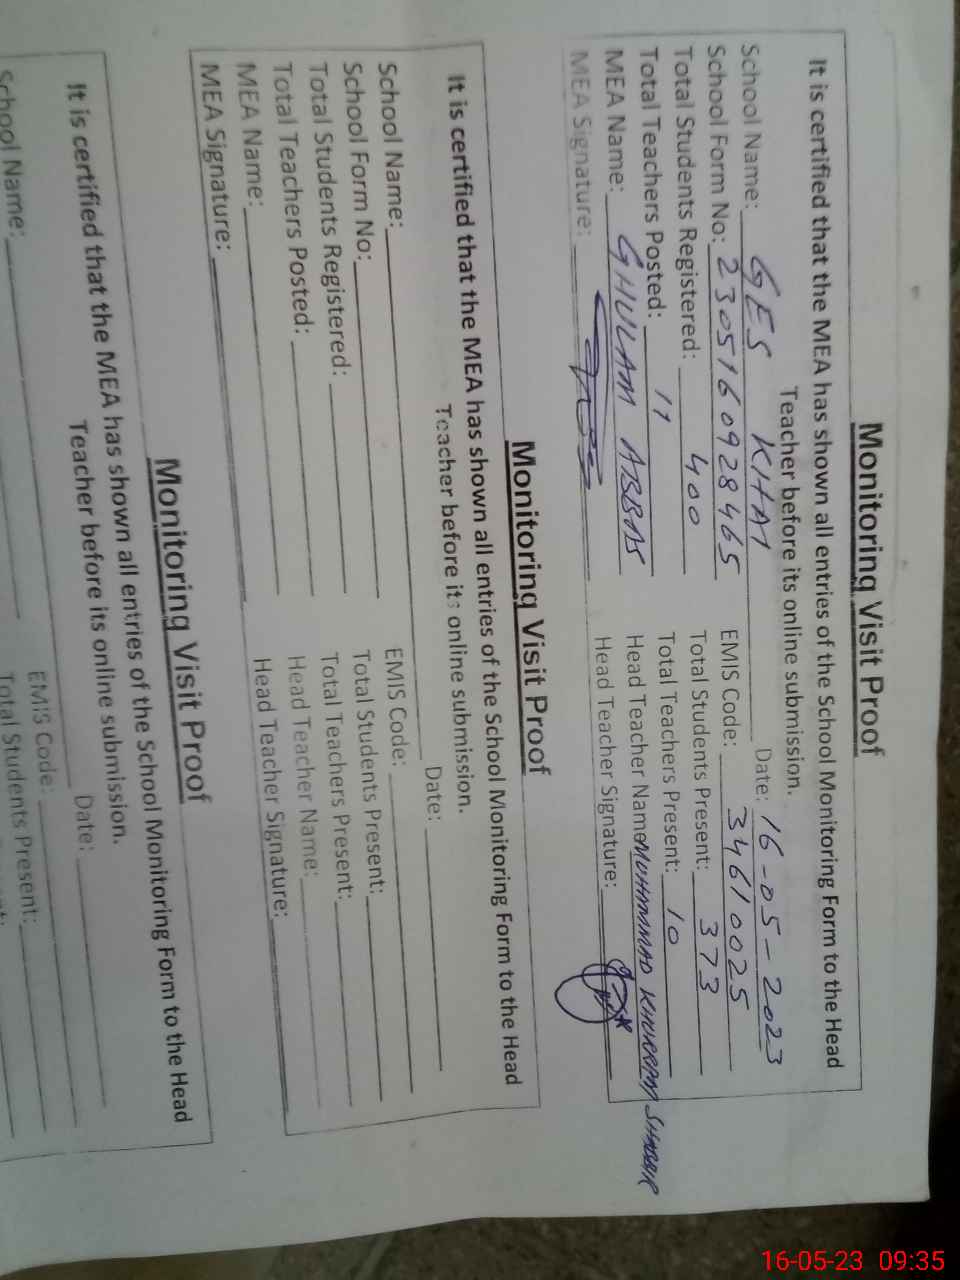 Monitoring Visit Proof
It is certified that the MEA has shown all entries of the School Monitoring Form to the Head
Teacher before its online submission.
School Name: GES KHAI Date: 16-05-2023
School Form No: 2305160928465 EMIS Code: 34610025
Total Students Registered: 400 Total Students Present: 373
Total Teachers Posted: 11 Total Teachers Present: 10
MEA Name: GHULAM ABBAS Head Teacher Name MUHAMMAD KHURRAM SHABBIR
MEA Signature: Head Teacher Signature:
Monitoring Visit Proof
It is certified that the MEA has shown all entries of the School Monitoring Form to the Head
Teacher before its online submission.
School Name: Date:
School Form No: EMIS Code:
Total Students Registered: Total Students Present:
Total Teachers Posted: Total Teachers Present:
MEA Name: Head Teacher Name:
MEA Signature: Head Teacher Signature:
Monitoring Visit Proof
It is certified that the MEA has shown all entries of the School Monitoring Form to the Head
Teacher before its online submission.
School Name: Date:
EMIS Code:
Total Students Present:
16-05-23 09:35